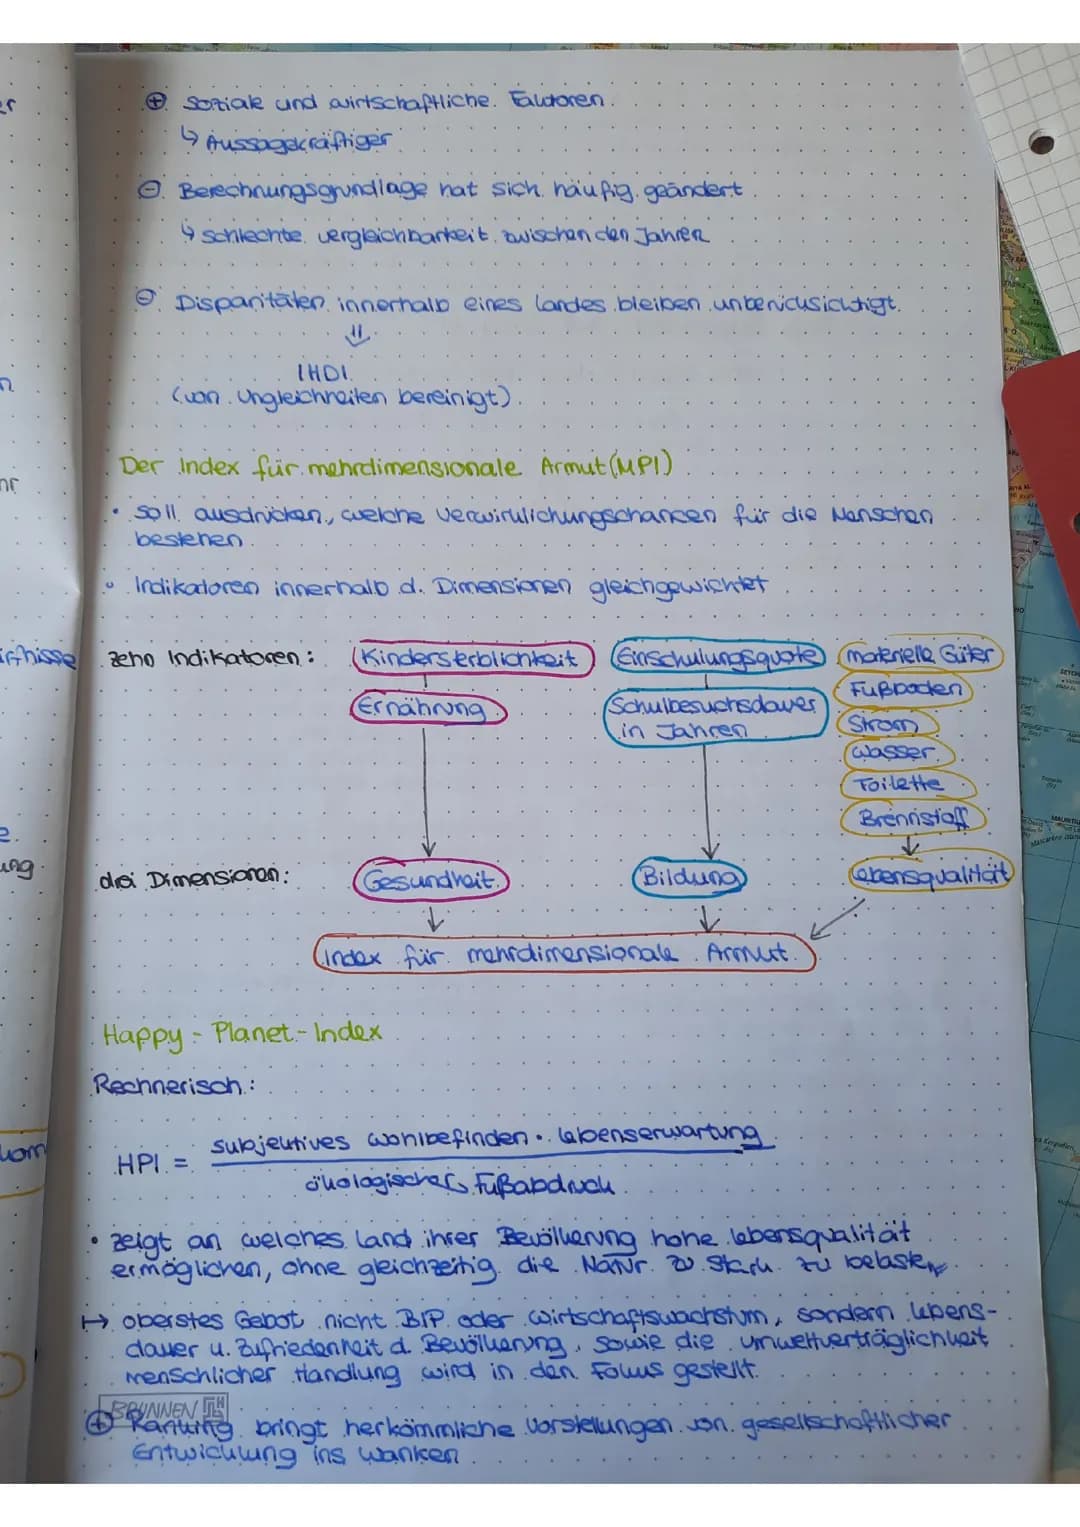 ⊕ soziale und wirtschaftliche Faktoren
↳ Aussagekräftiger
⊖ Berechnungsgrundlage hat sich häufig geändert
↳ schlechte vergleichbarkeit zwischen den Jahren
⊖ Disparitäten innerhalb eines Landes bleiben unberücksichtigt.
⇓
IHDI
(von Ungleichheiten bereinigt)
Der Index für mehrdimensionale Armut (MPI)
• soll ausdrücken, welche Verwirklichungschancen für die Menschen
bestehen
• Indikatoren innerhalb d. Dimensionen gleichgewichtet
zehn Indikatoren: Kindersterblichkeit Einschulungsquote materielle Güter
Ernährung Schulbesuchsdauer Fußboden
in Jahren Strom
Wasser
Toilette
Brennstoff
drei Dimensionen: Gesundheit Bildung Lebensqualität
Index für mehrdimensionale Armut
Happy-Planet-Index
Rechnerisch:
HPI = subjektives Wohlbefinden · Lebenserwartung
ökologischer Fußabdruck
• zeigt an welches Land ihrer Bevölkerung hohe Lebensqualität
ermöglichen, ohne gleichzeitig die Natur zu stark zu belasten
↦ oberstes Gebot nicht BIP oder Wirtschaftswachstum, sondern Lebens-
dauer u. Zufriedenheit d. Bevölkerung, sowie die Umweltverträglichkeit
menschlicher Handlung wird in den Fokus gestellt.
BRUNNEN
⊕ Ranking bringt herkömmliche Vorstellungen von gesellschaftlicher
Entwicklung ins wanken